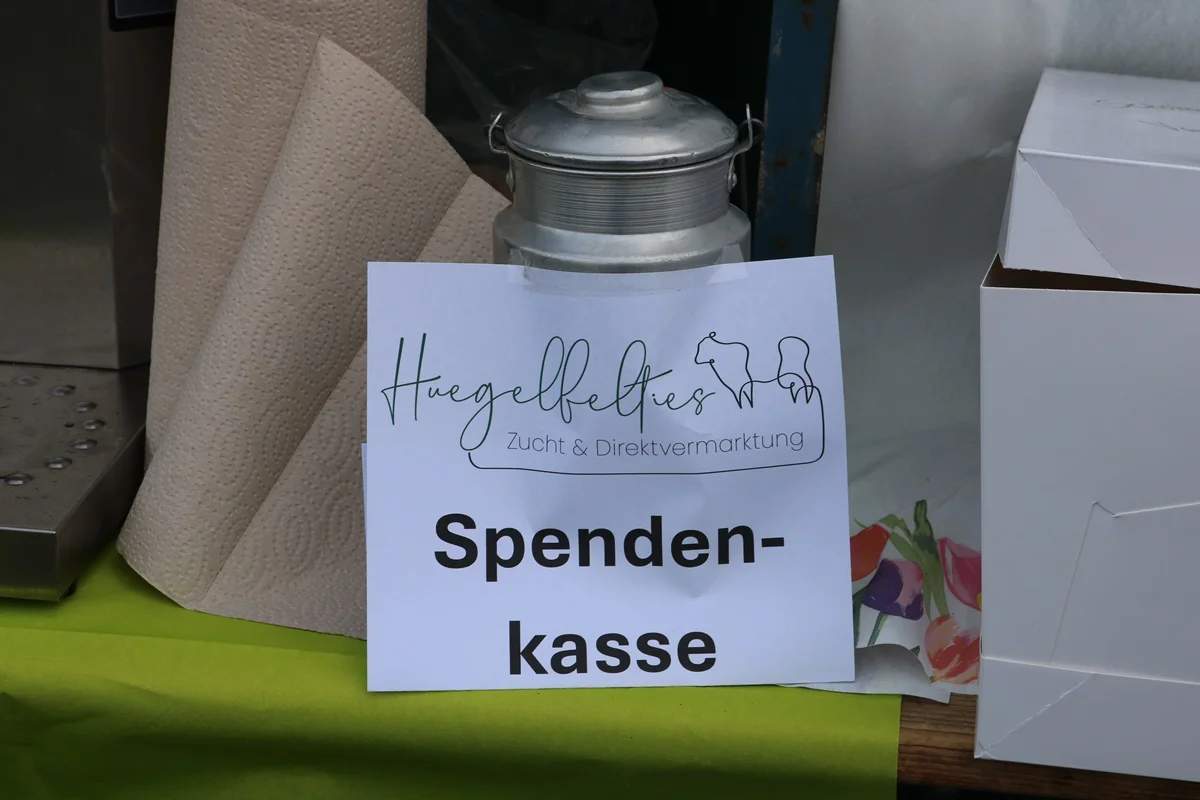 Huegelbelties
Zucht & Direktvermarktung
Spenden-
kasse